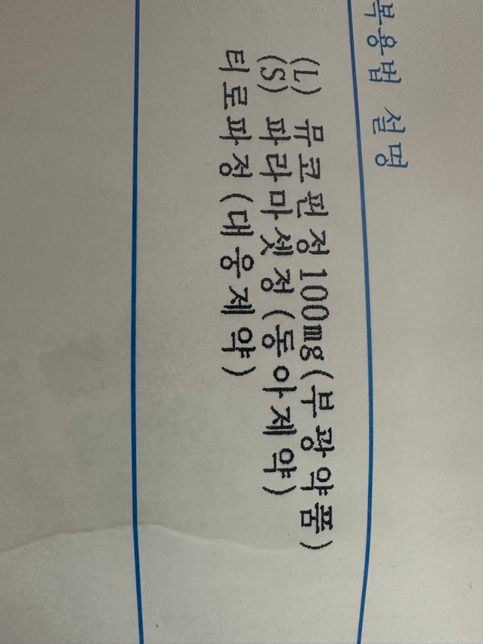 복용법 설명
(L) 뮤코핀정100mg(부광약품)
(S) 파라마셋정(동아제약)
티로파정(대웅제약)